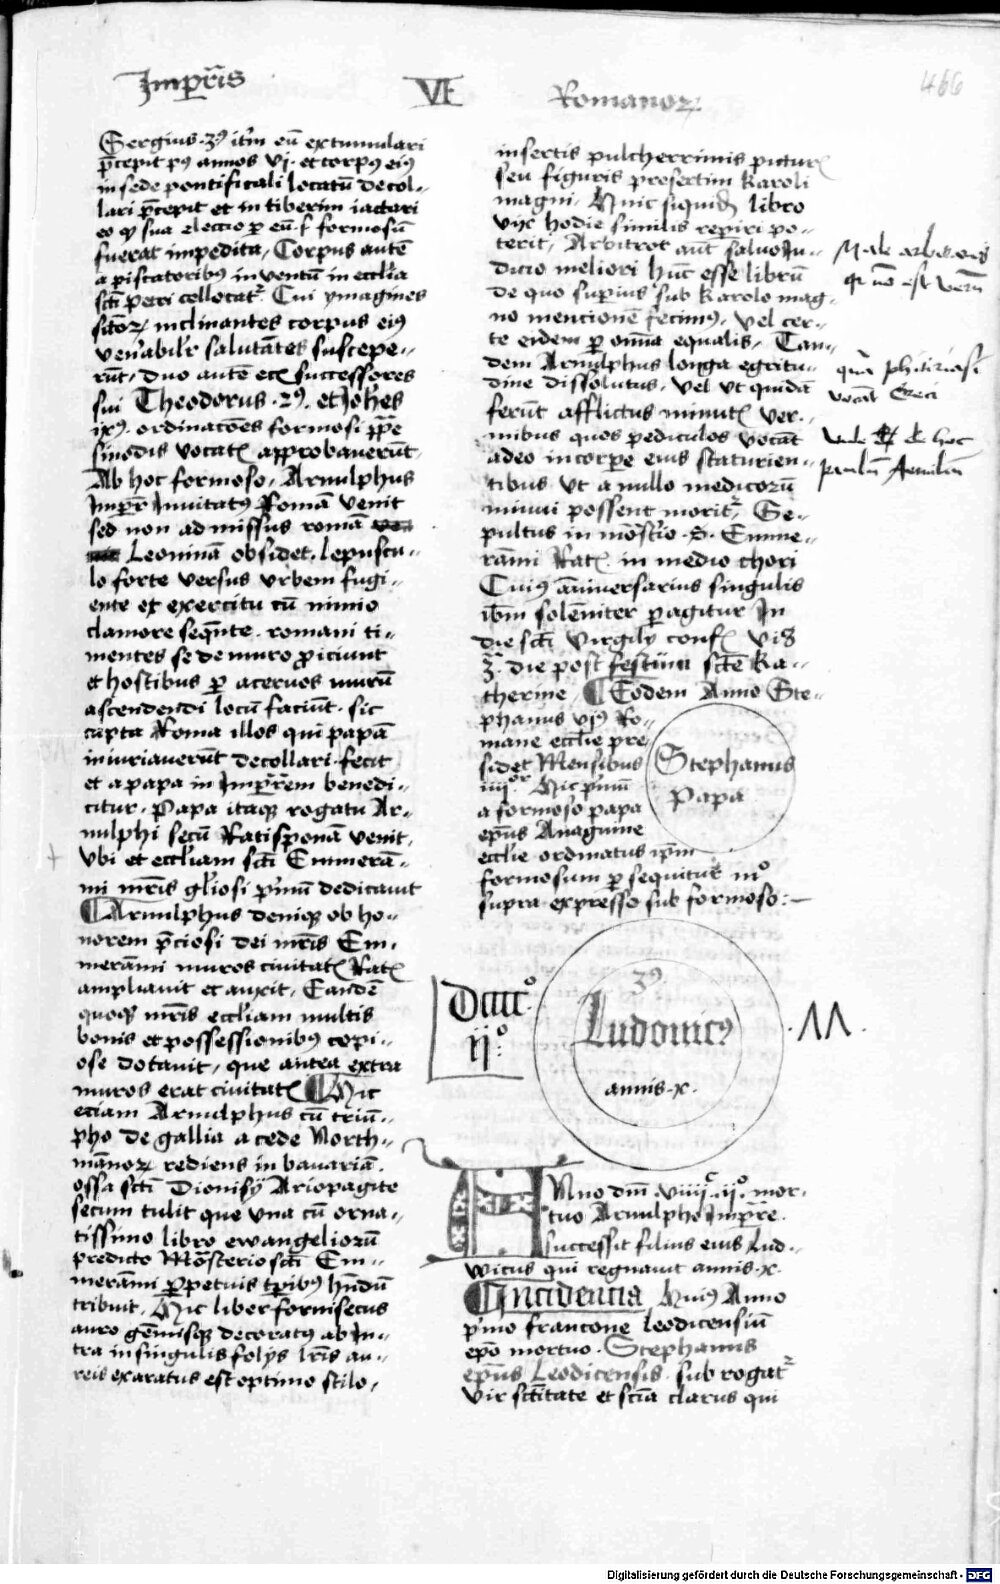 Imprīs VI Romanoꝝ
466
Sergius ·3ꝰ itm̄ eū extumulari
p̄cepit pꝰ annos vj· et corpꝰ eiꝰ
in sede pontificali locatū decol-
lari p̄cepit et in tiberim iactari
eo ꝙ sua eleccio ꝑ eū· f formosū
fuerat impedita, Corpus autē
a piscatoribꝰ inventū in eccl̄ia
scī petri collocatr̄. Cui ymagines
scōꝝ inclinantes corpus eiꝰ
ven̄abilr̄ salutātes suscepe-
rūt, duo autē eciā successores
sui Theodorus ·2ꝰ· et Joh̄es
ixꝰ· ordinacōes formosi pp̄e
sinodis vocat approbauerūt
Ab hoc formoso, Arnulphus
Impr̄ Invitatꝰ Romā venit
sed non admissus romā
Leoninā obsidet, lepuscu-
lo forte versus vrbem fugi-
ente et exercitu cū nimio
clamore seqn̄te· romani ti-
mentes se de muro ꝓiciunt
et hostibus ꝑ acervos murū
ascendendi locū faciūt· sic
capta Roma illos qui papā
iniuriaverūt decollari fecit
et a papa in Impr̄rēm benedi-
citur· Papa itaqꝫ rogatu Ar-
nulphi secū Ratisponā venit,
vbi et eccl̄iam scī Emmerā-
mi mr̄is gl̄iosi p̄mū dedicavit
Arnulphus deniqꝫ ob ho-
norem p̄ciosi dei mr̄is Em-
merāmi muros civitat Rat
ampliavit et auxit, Eandē
quoqꝫ mr̄is eccl̄iam multis
bonis et possessionibꝰ copi-
ose dotavit, que antea extra
muros erat civitat Hic
eciam Arnulphus cū triū-
pho de gallia a cede North-
mānoꝝ rediens in bavariā
ossa scī Dionisij Ariopagite
secum tulit que vna cū orna-
tissimo libro ewangeliorū
predicto Mōsterio scī Em-
merāmi ꝑpetuis tꝑibꝰ hn̄dū
tribuit, Hic liber fornisecus
auro gēmisqꝫ decoratꝰ ab In-
tra in singulis folijs lr̄is au-
reis exaratus est optimo stilo,
insertis pulcherrimis pictur
seu figuris presertim Karoli
magni, Huic siquid libro
vix hodie similis repiri po-
terit, Arbitror aūt salvo Ju-
dicio meliori hūc esse librū
de quo suꝑius sub Karolo mag-
no mencionē fecimꝰ, vel cer-
te eidem ꝑ om̄ia equalis, Tan-
dem Arnulphus longa egritu-
dine dissolutus, vel vt quidā
ferūt afflictus minut ver-
mibus quos pediculos vocāt
adeo in corꝑe eius scaturien-
tibus vt a nullo medicorū
minui possent moritr̄, Se-
pultus in mōst̄io ·S· Emme-
rāmi Rat· in medio chori
Cuiꝰ an̄iversarius singulis
ibm̄ solēniter ꝑagitur In
die scī Virgilij conf vꝫ
3ᵃ die post festum scē Ka-
therine, Eodem Anno Ste-
phanus vjꝰ Ro-
mane eccl̄ie pre
sidet Mensibus
iiijᵒʳ Hic p̄mū
a formoso papa
ep̄us Anagnine
eccl̄ie ordinatus ip̄m
formosum ꝑsequitur mᵒ
supra expresso sub formoso:—
Stephanus
Papa
Male arbitraris
qꝛ nō est verū
quā phthiriasi
vocāt Greci
Vide de hoc
paulū Aemiliū
Dccccᵒ
ijᵒ
3ꝰ
Ludouicꝰ
annis ·x·
·ΛΛ·
Anno dm̄ ·viiijᶜ·ijᵒ· mor-
tuo Arnulpho Impr̄re
successit filius eius Lud-
wicus qui regnauit annis ·x·
Incidencia Huiꝰ Anno
p̄mo francone leodicensiū
ep̄o mortuo· Stephanus
ep̄us Leodicensis· subrogatr̄
vir sc̄titate et sciā clarus qui
Digitalisierung gefördert durch die Deutsche Forschungsgemeinschaft - DFG